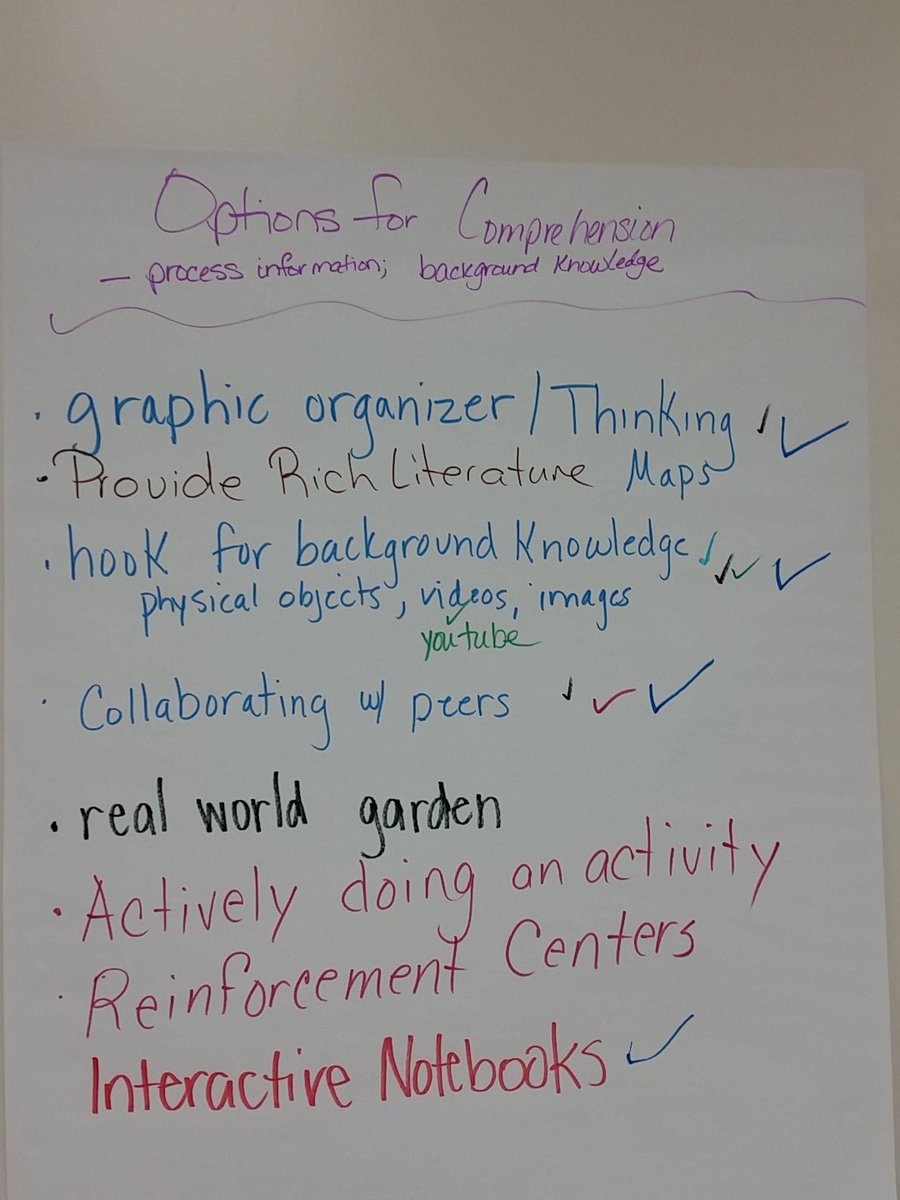 Options for Comprehension
– process information; background Knowledge
• graphic organizer / Thinking ✓✓
Maps
• Provide Rich Literature
• hook for background Knowledge ✓✓✓✓
physical objects, videos, images
✓ youtube
• Collaborating w/ peers ✓✓✓
• real world garden
• Actively doing an activity
• Reinforcement Centers
Interactive Notebooks ✓